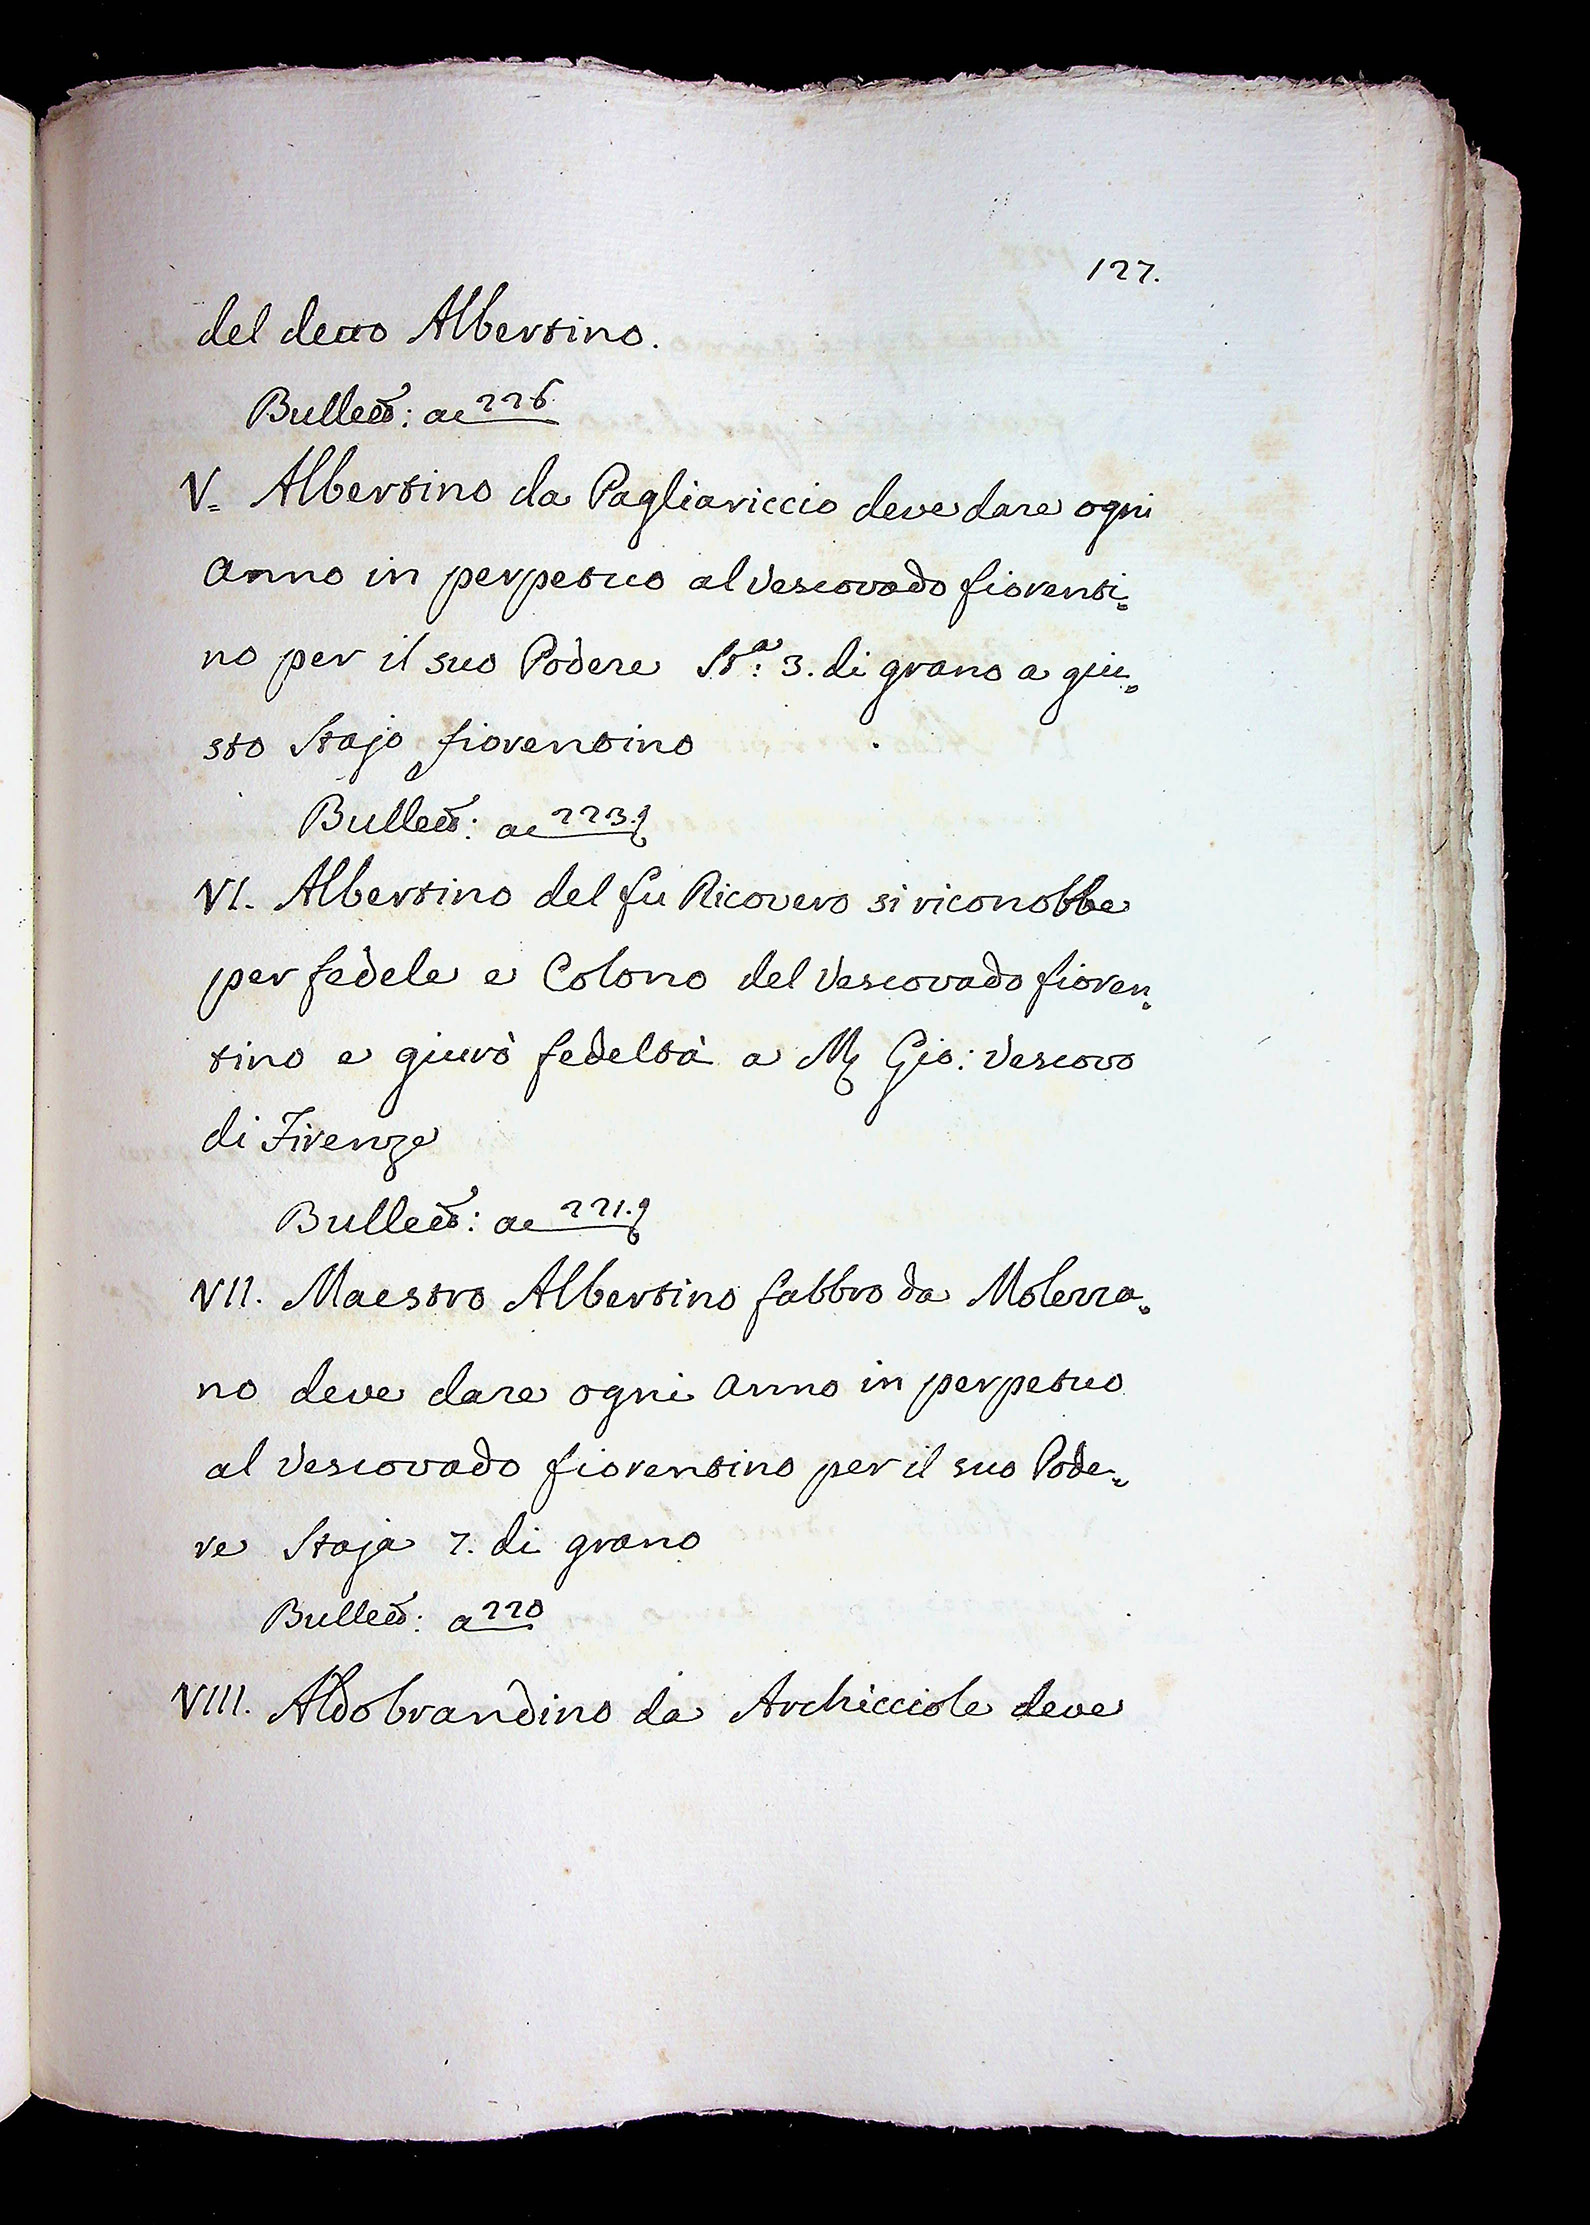 127.
del detto Albertino.
Bullett: ac 226
V. Albertino da Pagliariccio deve dare ogni
Anno in perpetuo al Vescovado fiorenti=
no per il suo Podere Sta: 3. di grano a giu=
sto Stajo fiorentino
Bullett: ac 223.
VI. Albertino del fu Ricovero si riconobbe
per fedele e Colono del Vescovado fioren=
tino e giurò fedeltà a M Gio: Vescovo
di Firenze
Bullett: ac 221.
VII. Maestro Albertino fabbro da Molezza=
no deve dare ogni Anno in perpetuo
al Vescovado fiorentino per il suo Pode=
re Staja 7. di grano
Bullett: a 220
VIII. Aldobrandino da Archicciole deve